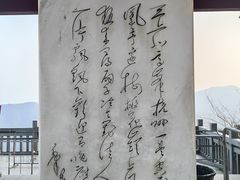 三上北高峰杭州一望空飞
凤亭边树桃花岭上风
热来寻扇子冷去对人
一片飘飘下欢迎有晚